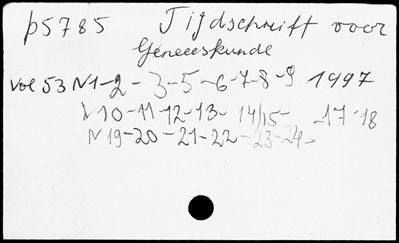 p5785 Tijdschrift voor
Geneeeskunde
Vol 53 N1-2-3-5-6-7-8-9 1997
N10-11-12-13-14/15-17-18
N19-20-21-22-23-24-